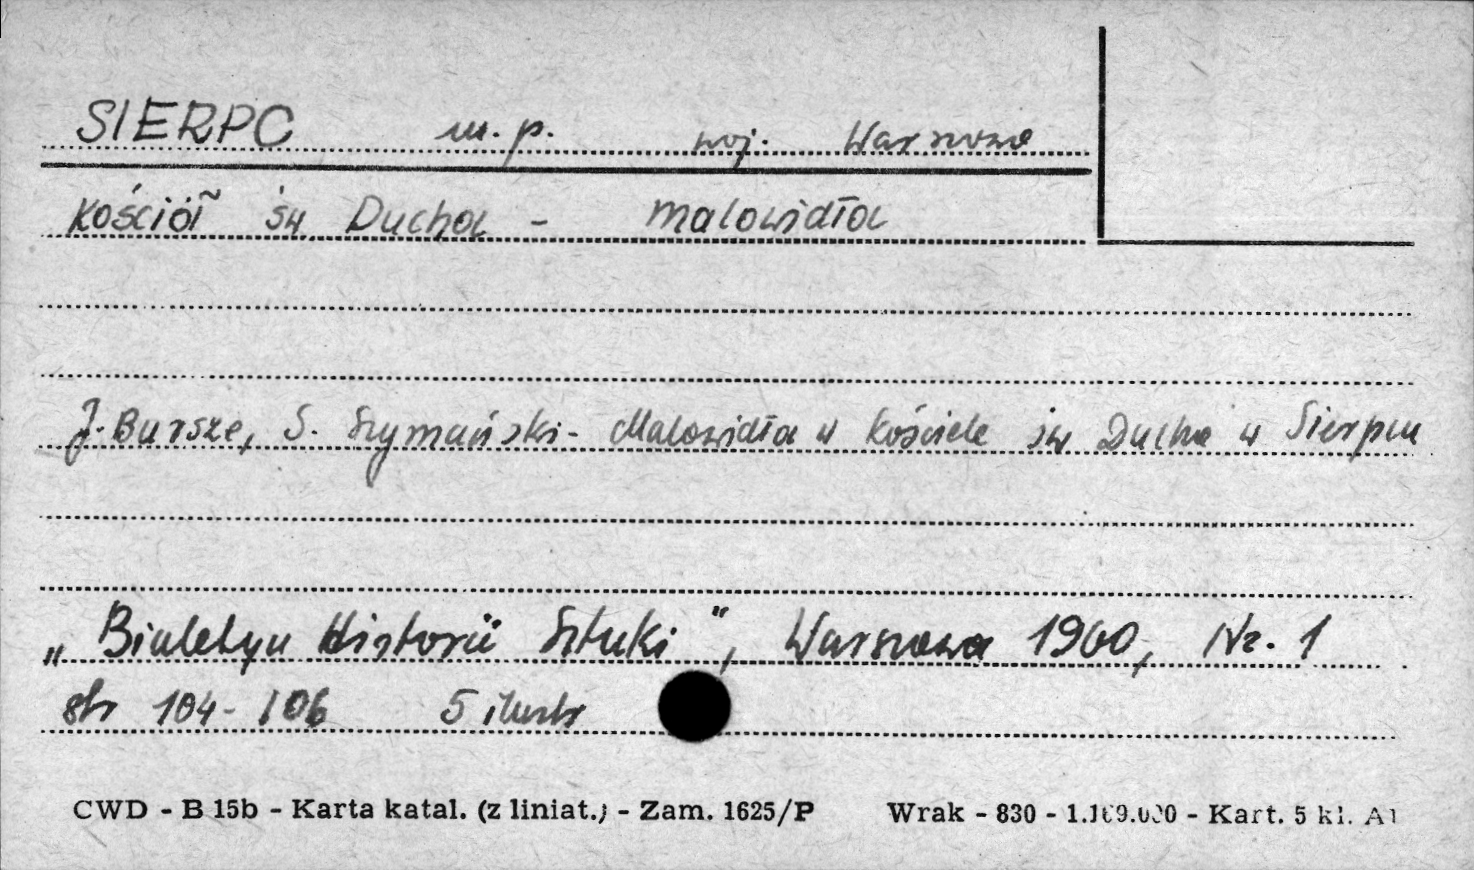 SIERPC m. p. woj. Warszawa
Kościół św Ducha - malowidła
J. Bursze, S. Szymański - Malowidła w kościele św Ducha w Sierpcu
„Biuletyn Historii Sztuki", Warszawa 1960, Nr. 1
str 104-106 5 ilustr
CWD - B 15b - Karta katal. (z liniat.) - Zam. 1625/P Wrak - 830 - Kart. 5 kl. A1